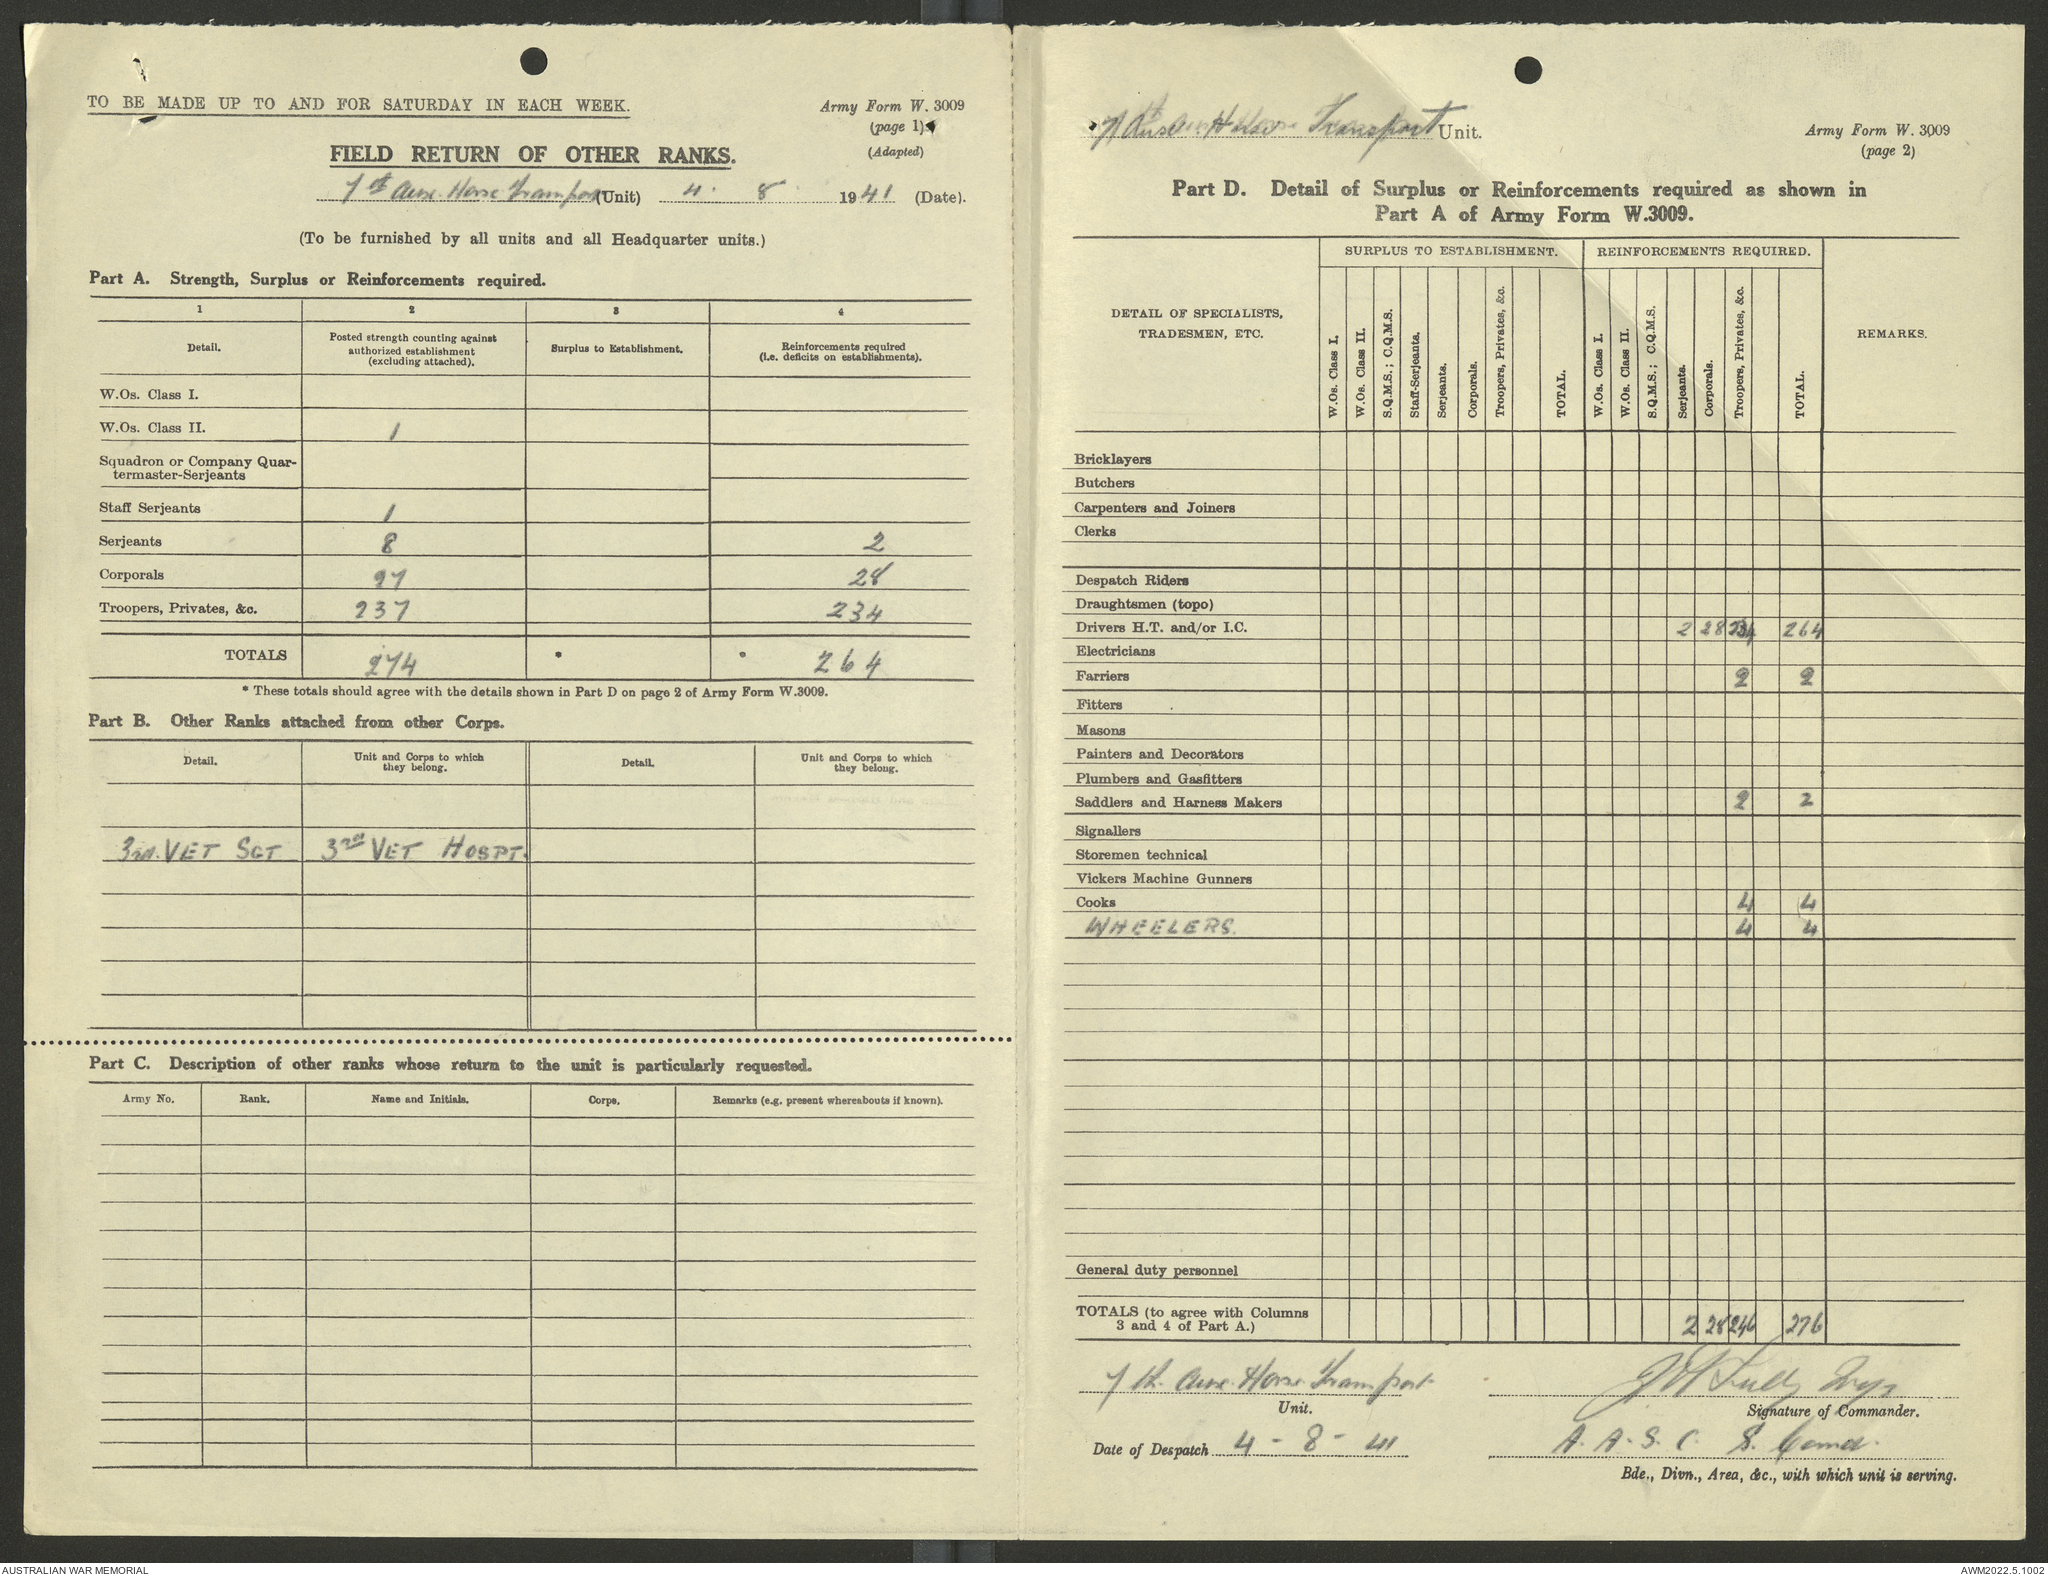 TO BE MADE UP TO AND FOR SATURDAY IN EACH WEEK.
Army Form W. 3009
(page 1)
(Adapted)
FIELD RETURN OF OTHER RANKS.
Horse Transport (Unit) 4. 8. 1941 (Date).
(To be furnished by all units and all Headquarter units.)
Part A. Strength, Surplus or Reinforcements required.
1 2 3 4
Detail. Posted strength counting against authorized establishment (excluding attached). Surplus to Establishment. Reinforcements required (i.e. deficits on establishments).
W.Os. Class I.
W.Os. Class II. 1
Squadron or Company Quar-
termaster-Serjeants
Staff Serjeants 1
Serjeants 8 2
Corporals 27 28
Troopers, Privates, &c. 237 234
TOTALS 274 * * 264
* These totals should agree with the details shown in Part D on page 2 of Army Form W.3009.
Part B. Other Ranks attached from other Corps.
Detail. Unit and Corps to which they belong. Detail. Unit and Corps to which they belong.
VET SGT 3rd VET HOSPT.
Part C. Description of other ranks whose return to the unit is particularly requested.
Army No. Rank. Name and Initials. Corps. Remarks (e.g. present whereabouts if known).
Transport Unit.
Army Form W. 3009
(page 2)
Part D. Detail of Surplus or Reinforcements required as shown in
Part A of Army Form W.3009.
DETAIL OF SPECIALISTS, TRADESMEN, ETC.
SURPLUS TO ESTABLISHMENT. REINFORCEMENTS REQUIRED.
REMARKS.
W.Os. Class I. W.Os. Class II. S.Q.M.S.; C.Q.M.S. Staff-Serjeants. Serjeants. Corporals. Troopers, Privates, &c. TOTAL.
W.Os. Class I. W.Os. Class II. S.Q.M.S.; C.Q.M.S. Serjeants. Corporals. Troopers, Privates, &c. TOTAL.
Bricklayers
Butchers
Carpenters and Joiners
Clerks
Despatch Riders
Draughtsmen (topo)
Drivers H.T. and/or I.C. 2 28 234 264
Electricians
Farriers 2 2
Fitters
Masons
Painters and Decorators
Plumbers and Gasfitters
Saddlers and Harness Makers 2 2
Signallers
Storemen technical
Vickers Machine Gunners
Cooks 4 4
WHEELERS. 4 4
General duty personnel
TOTALS (to agree with Columns
3 and 4 of Part A.) 2 28 246 276
7th Horse Transport
Unit.
Signature of Commander.
Date of Despatch 4 - 8 - 41
A. A. S. C. S. Comd.
Bde., Divn., Area, &c., with which unit is serving.
AUSTRALIAN WAR MEMORIAL
AWM2022.5.1002